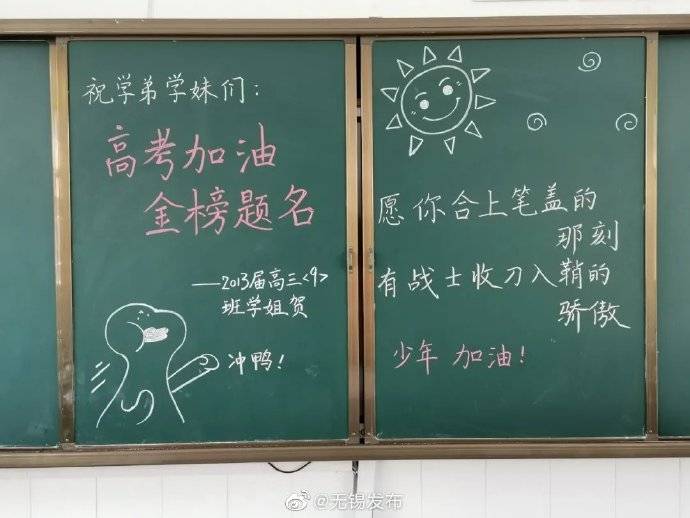 祝学弟学妹们：
高考加油
金榜题名
——2013届高三<9>
班学姐贺
冲鸭！
愿你合上笔盖的
那刻
有战士收刀入鞘的
骄傲
少年 加油！
@无锡发布